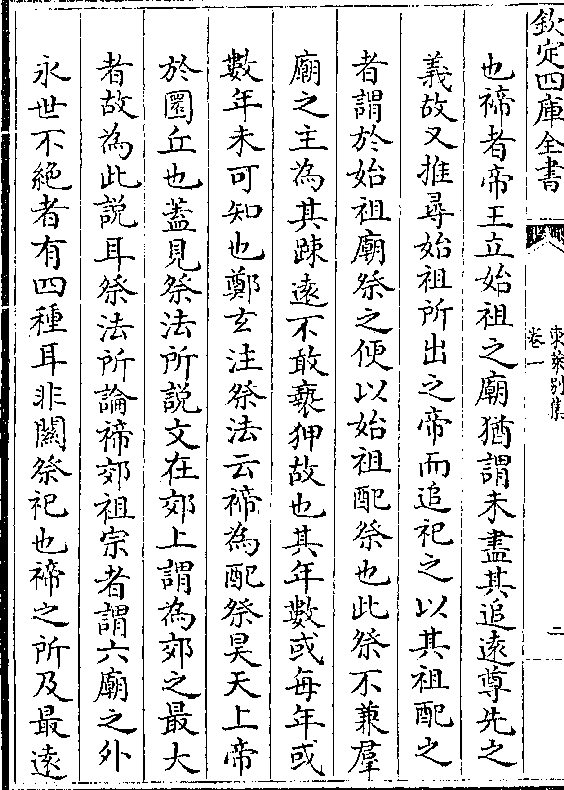 欽定四庫全書
東萊別集
卷一
二
也禘者帝王立始祖之廟猶謂未盡其追遠尊先之
義故又推尋始祖所出之帝而追祀之以其祖配之
者謂於始祖廟祭之便以始祖配祭也此祭不兼羣
廟之主為其疎遠不敢褻狎故也其年數或每年或
數年未可知也鄭玄注祭法云禘為配祭昊天上帝
於圜丘也蓋見祭法所説文在郊上謂為郊之最大
者故為此説耳祭法所論禘郊祖宗者謂六廟之外
永世不絶者有四種耳非闗祭祀也禘之所及最逺